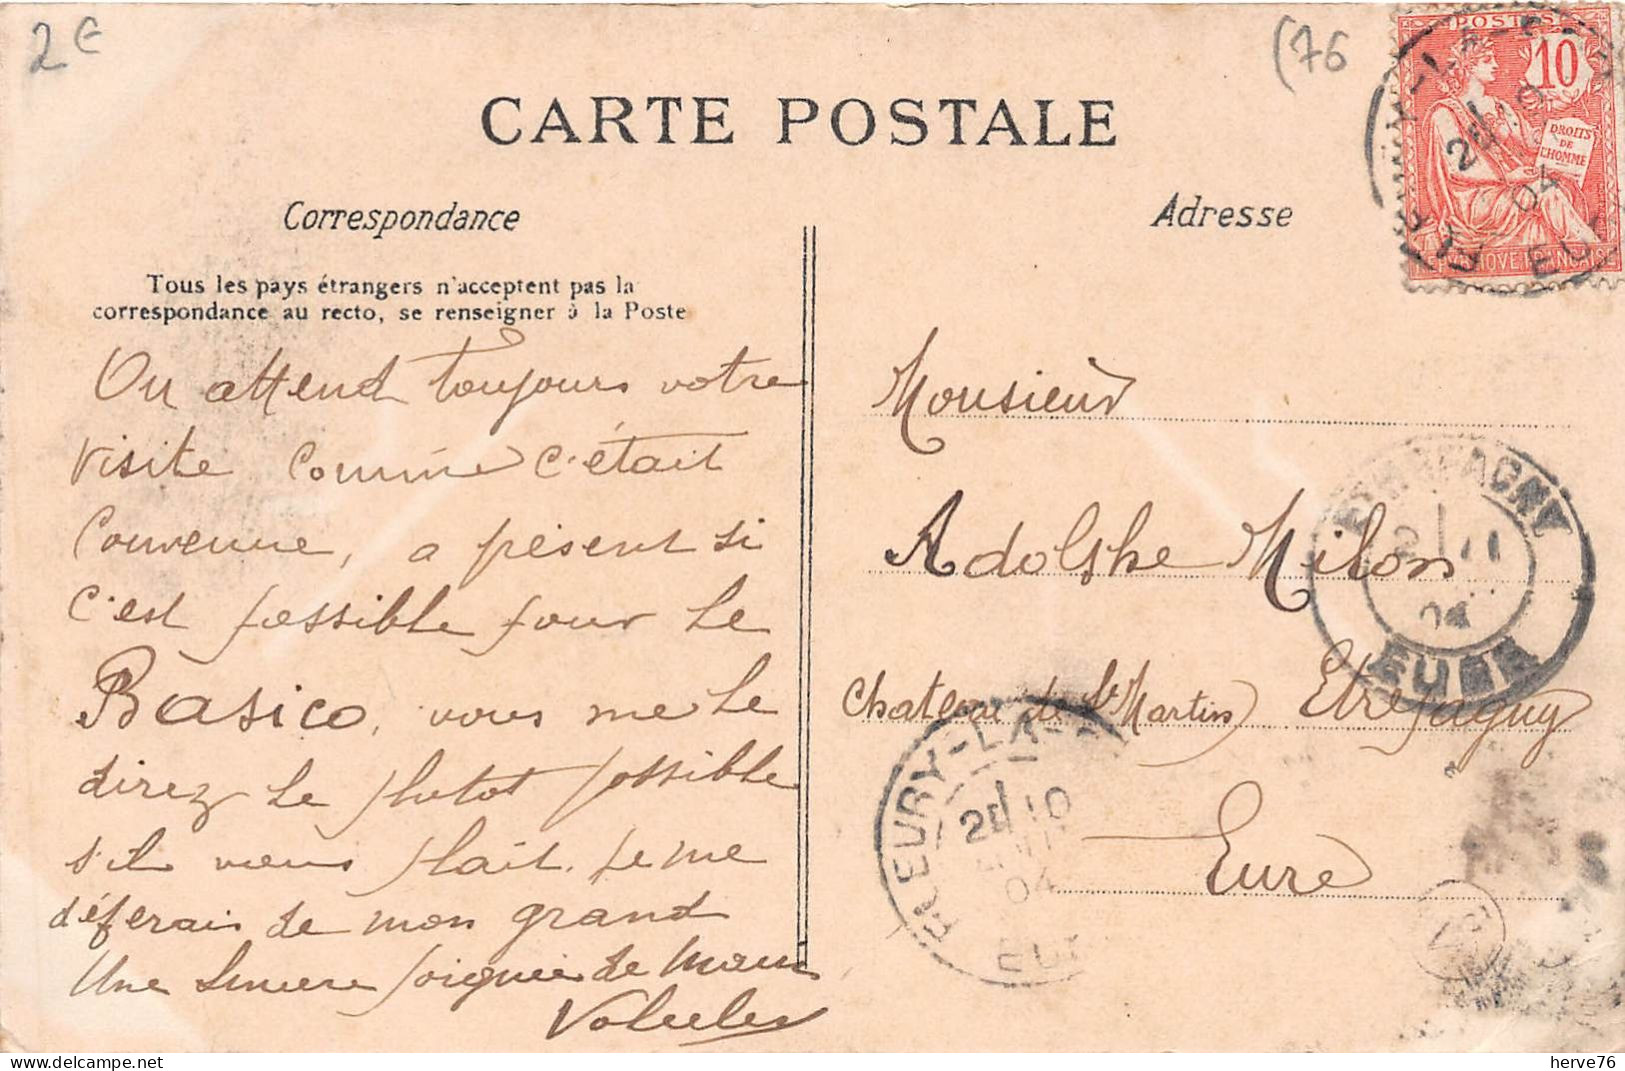 2€
(76
POSTES
10
DROITS
DE
L'HOMME
REPUBLIQUE FRANÇAISE
CARTE POSTALE
Correspondance
Adresse
Tous les pays étrangers n'acceptent pas la
correspondance au recto, se renseigner à la Poste
On attend toujours votre
visite comme c'était
Convenue, a present si
c'est possible pour le
Basico, vous me le
direz le plutot possible
s'il vous plait. je me
déferais de mon grand
Une Sincere poignée de main
Monsieur
Adolphe Milon
chateau de St Martin Etrepagny
Eure
ETREPAGNY
11
04
EURE
FLEURY-LA-
2E 10
04
EUR
herve76